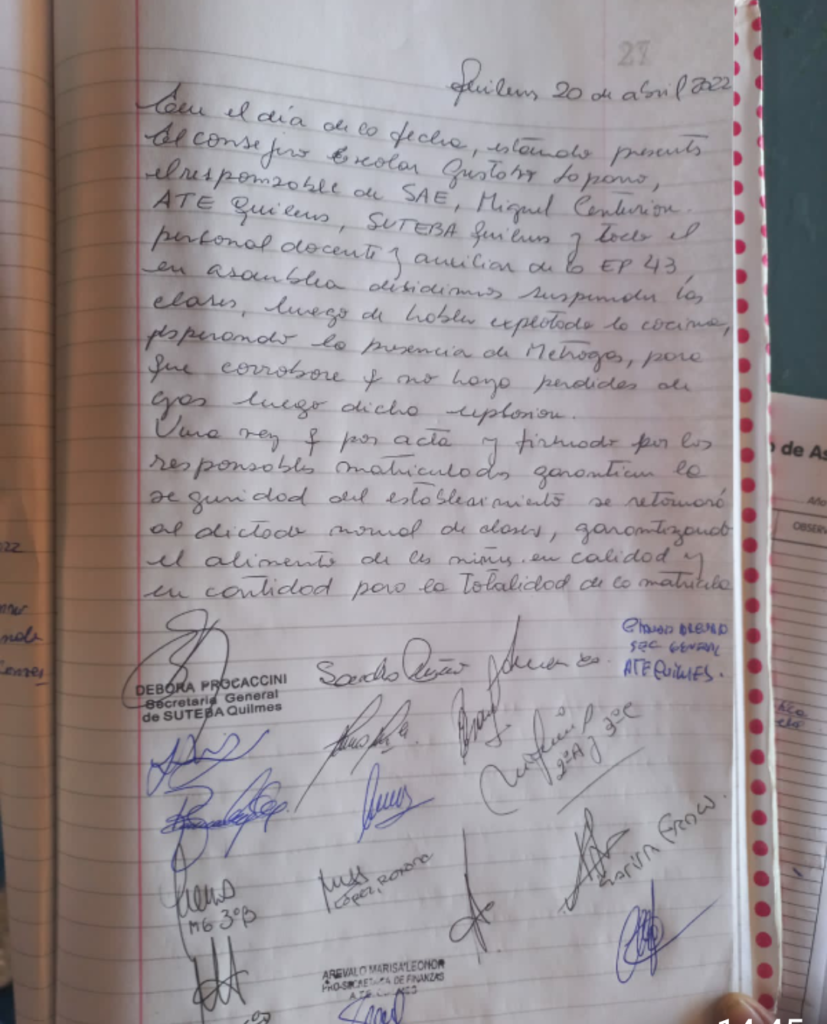 27
Quilmes 20 de abril 2022
En el día de la fecha, estando presente
el consejero Escolar Gustavo Lopano,
el responsable de SAE, Miguel Centurion.
ATE Quilmes, SUTEBA Quilmes y todo el
personal docente y auxiliar de la EP 43,
en asamblea disidimos suspender las
clases, luego de haber explotado la cocina,
esperando la presencia de Metrogas, para
que corrobore q no haya perdidas de
gas luego dicha explosion.
Una vez q por acta y firmado por los
responsables matriculados garanticen la
seguridad del establecimiento se retomará
al dictado normal de clases, garantizando
el alimento de les niñes en calidad y
en cantidad para la totalidad de la matricula
SEC GENERAL
ATE QUILMES.
DEBORA PROCACCINI
Secretaria General
de SUTEBA Quilmes
2ºA y 3ºC
MG 3ºB
AREVALO MARISA LEONOR
PRO-SECRETARIA DE FINANZAS
de As
OBSERV
14:45